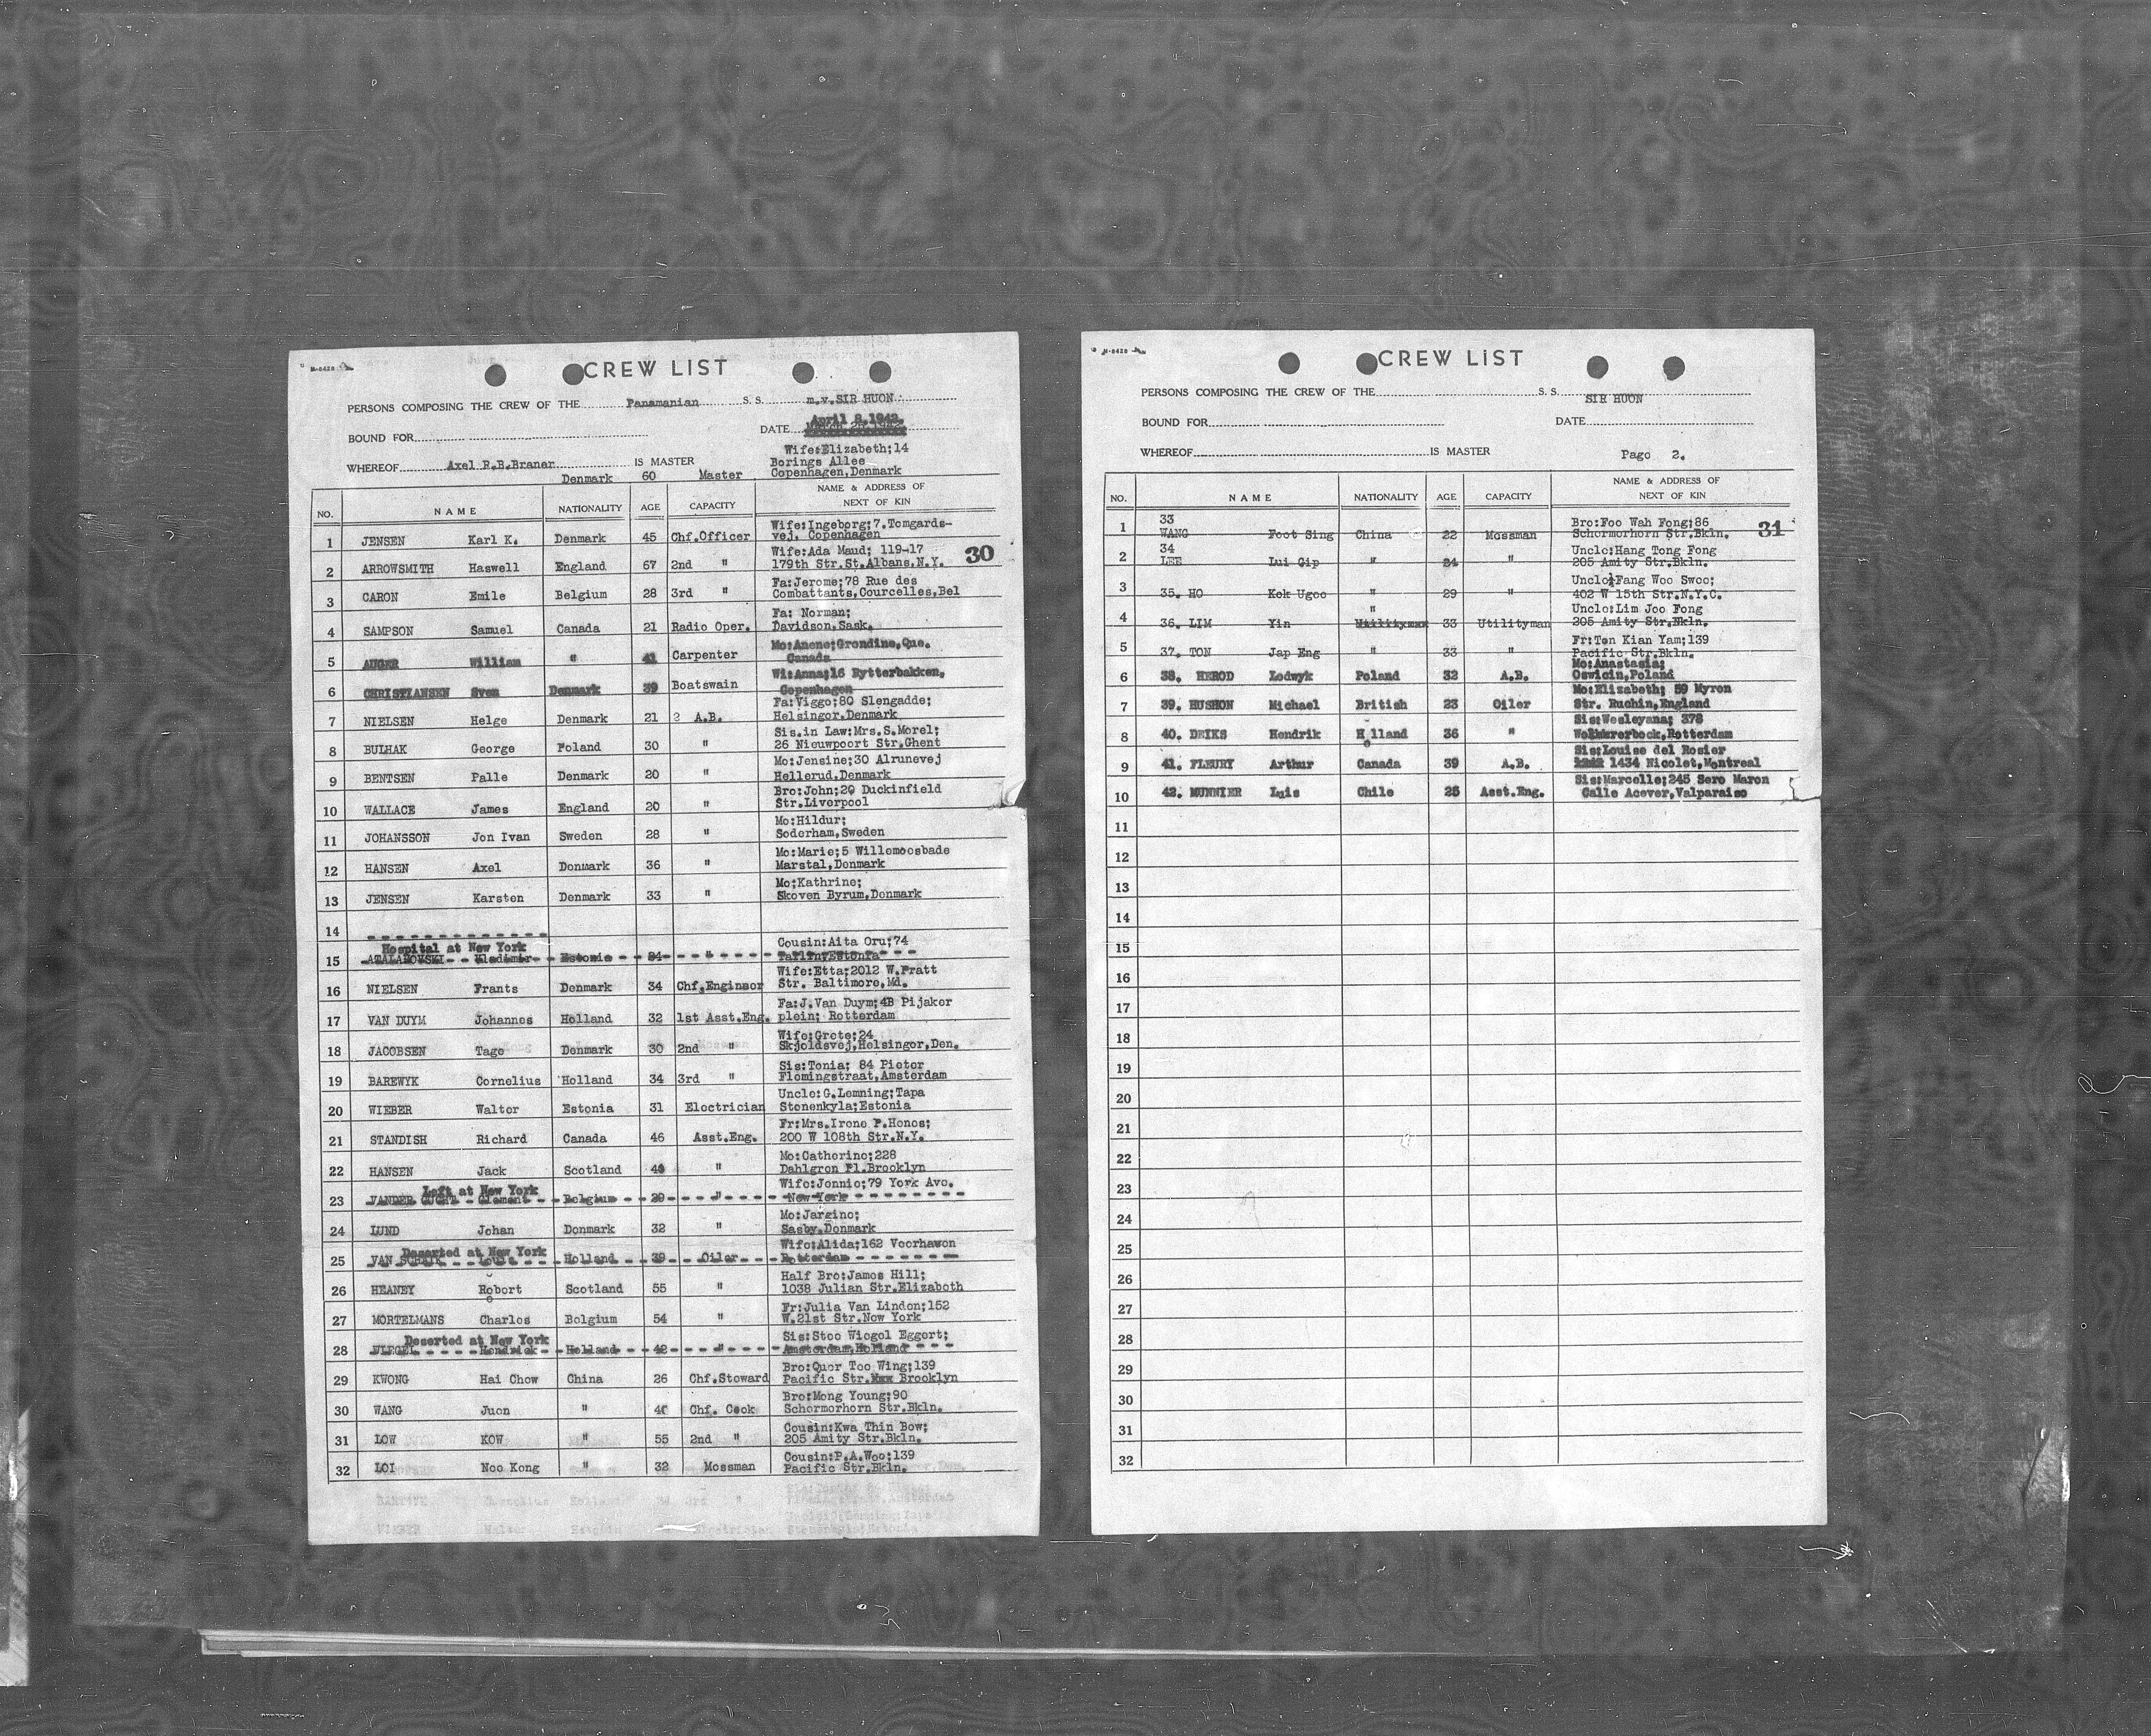 CREW LIST
PERSONS COMPOSING THE CREW OF THE Panamanian S. S. m.v. SIR HUON
BOUND FOR DATE April 8,1942.
WHEREOF Axel R.B.Braner IS MASTER
Denmark 60 Master Wife:Elizabeth;14
Borings Allee
Copenhagen,Denmark
NO. NAME NATIONALITY AGE CAPACITY NAME & ADDRESS OF NEXT OF KIN
1 JENSEN Karl K. Denmark 45 Chf.Officer Wife:Ingeborg;7.Tomgards-
vej. Copenhagen
2 ARROWSMITH Haswell England 67 2nd " Wife:Ada Maud; 119-17
179th Str.St.Albans,N.Y.
30
3 CARON Emile Belgium 28 3rd " Fa:Jerome;78 Rue des
Combattants,Courcelles,Bel
4 SAMPSON Samuel Canada 21 Radio Oper. Fa: Norman;
Davidson,Sask.
5 AUGER William " 41 Carpenter Mo:Anene;Grondine,Que.
Canada
6 CHRISTIANSEN Sven Denmark 39 Boatswain Wi:Anna;16 Rytterbakken,
Copenhagen
7 NIELSEN Helge Denmark 21 A.B. Fa:Viggo;80 Slengadde;
Helsingor,Denmark
8 BULHAK George Poland 30 " Sis.in Law:Mrs.S.Morel;
26 Nieuwpoort Str.Ghent
9 BENTSEN Palle Denmark 20 " Mo:Jensine;30 Alrunevej
Hellerud,Denmark
10 WALLACE James England 20 " Bro:John;20 Duckinfield
Str.Liverpool
11 JOHANSSON Jon Ivan Sweden 28 " Mo:Hildur;
Soderham,Sweden
12 HANSEN Axel Denmark 36 " Mo:Marie;5 Willemoesbade
Marstal,Denmark
13 JENSEN Karsten Denmark 33 " Mo:Kathrine;
Skoven Byrum,Denmark
14
Hospital at New York
15 Vladimir Estonia " Cousin:Aita Oru;74
16 NIELSEN Frants Denmark 34 Chf.Engineer Wife:Etta;2012 W.Pratt
Str. Baltimore,Md.
17 VAN DUYM Johannes Holland 32 1st Asst.Eng. Fa:J.Van Duym;4B Pijaker
plein; Rotterdam
18 JACOBSEN Tage Denmark 30 2nd " Wife:Grete;24
Skjoldsvej,Helsingor,Den.
19 BAREWYK Cornelius Holland 34 3rd " Sis:Tonia; 84 Pieter
Flemingstraat,Amsterdam
20 WIEBER Walter Estonia 31 Electrician Uncle:G.Lemning;Tapa
Stenenkyla;Estonia
21 STANDISH Richard Canada 46 Asst.Eng. Fr:Mrs.Irene P.Henos;
200 W 108th Str.N.Y.
22 HANSEN Jack Scotland " Mo:Catherine;228
Dahlgren Pl.Brooklyn
Left at New York
23 VANDER Clement Belgium 29 " Wife:Jennie;79 York Ave.
New York
24 LUND Johan Denmark 32 " Mo:Jargine;
Sasby.Denmark
Deserted at New York
25 VAN Holland 39 Oiler Wife:Alida;162 Voorhaven
Rotterdam
26 HEANEY Robert Scotland 55 " Half Bro:James Hill;
1038 Julian Str.Elizabeth
27 MORTELMANS Charles Belgium 54 " Fr:Julia Van Linden;152
W.21st Str.New York
Deserted at New York
28 Hendrick Holland 42 " Sis:Stee Wiegel Eggert;
Amsterdam,Holland
29 KWONG Hai Chow China 26 Chf.Steward Bro:Quor Tee Wing;139
Pacific Str. Brooklyn
30 WANG Juen " Chf. Cook Bro:Mong Young;90
Schermerhorn Str.Bkln.
31 LOW KOW " 55 2nd " Cousin:Kwa Thin Bow;
205 Amity Str.Bkln.
32 LOI Nee Kong " 32 Messman Cousin:P.A.Woo;139
Pacific Str.Bkln.
CREW LIST
PERSONS COMPOSING THE CREW OF THE S. S. SIR HUON
BOUND FOR DATE
WHEREOF IS MASTER Page 2.
NO. NAME NATIONALITY AGE CAPACITY NAME & ADDRESS OF NEXT OF KIN
1 33 WANG Foot Sing China 22 Messman Bro:Foo Wah Fong;86
Schermerhorn Str.Bkln.
31
2 34 LEE Lui Gip " 24 " Uncle:Hang Tong Fong
205 Amity Str.Bkln.
3 35. HO Kok Ugee " 29 " Uncle:Fang Woo Swee;
402 W 15th Str.N.Y.C.
4 36. LIM Yin " 33 Utilityman Uncle:Lim Joo Fong
205 Amity Str.Bkln.
5 37. TON Jap Eng " 33 " Fr:Ten Kian Yam;139
Pacific Str.Bkln.
6 38. HEROD Lodwyk Poland 32 A.B. Mo:Anastasia;
Oswicin,Poland
7 39. HUSHON Michael British 23 Oiler Mo:Elizabeth; 59 Myron
Str. Ruchin,England
8 40. DEIKS Hendrik Holland 36 " Sis:Wesleyana; 378
Rotterdam
9 41. FLEURY Arthur Canada 39 A.B. Sis:Louise del Rosier
1434 Nicolet,Montreal
10 42. MUNNIER Luis Chile 25 Asst.Eng. Sis:Marcelle;245 Sero Maron
Calle Acever,Valparaiso
11
12
13
14
15
16
17
18
19
20
21
22
23
24
25
26
27
28
29
30
31
32